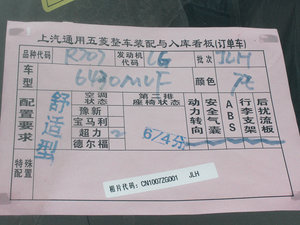 上汽通用五菱整车装配与入库看板(订单车)
品种代码 发动机代码 LG 批次 JLH
车型 6400MVF 颜色
配置要求 舒适型 空调状态 第二排座椅状态 动力转向 安全气囊 ABS 行李支架 后扰流板
豫新
宝马利
超力 2 6/4分
德尔福
特殊配置
粗片代码:CN1007ZG001 JLH